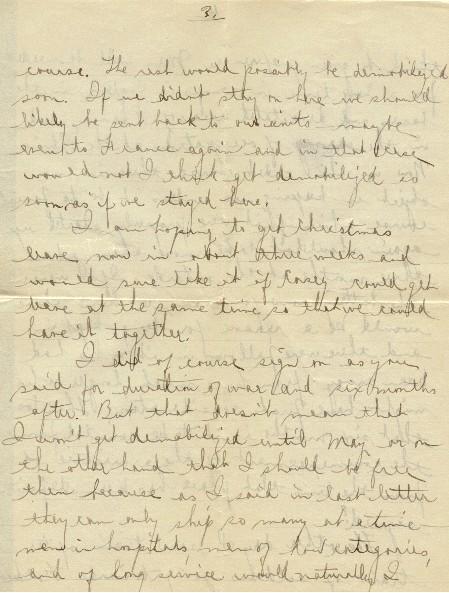 3.
course. The rest would possibly be demobilized
soon. If we didn't stay on here we should
likely be sent back to our units maybe
even to France again and in that case
would not I think get demobilized so
soon as if we stayed here.
I am hoping to get Christmas
leave now in about three weeks and
would sure like it if Casey could get
leave at the same time so that we could
have it together.
I did of course sign on as you
said for duration of war and six months
after. But that doesn't mean that
I won't get demobilized until May or on
the other hand that I should be free
then because as I said in last letter
they can only ship so many at a time
men in hospitals, men of low categories,
and of long service would naturally I